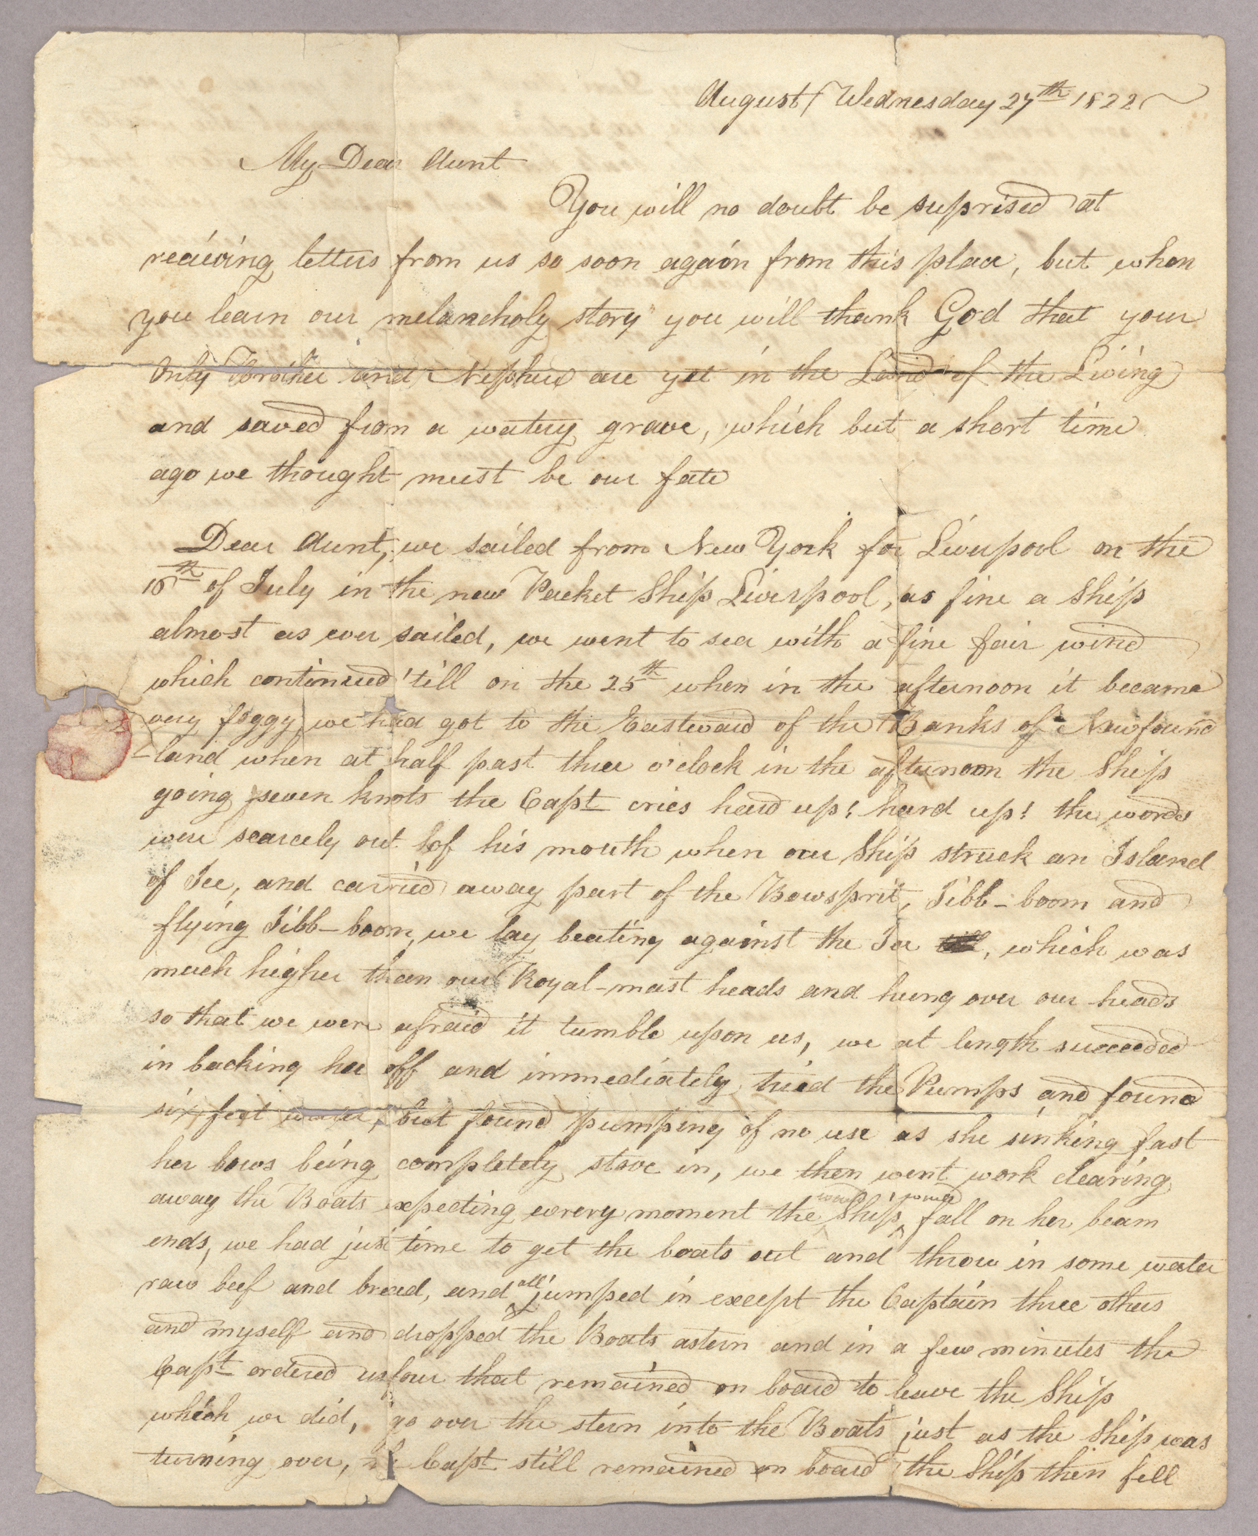 August Wednesday 27th 1822
My Dear Aunt
You will no doubt be suprised at
recieving letters from us so soon again from this place, but when
you learn our melancholy story you will thank God that your
Only Brother and Nephew are yet in the Land of the Living
and saved from a watery grave, which but a short time
ago we thought must be our fate
Dear Aunt, we sailed from New York for Liverpool on the
16th of July in the new Packet Ship Liverpool, as fine a Ship
almost as ever sailed, we went to sea with a fine fair wind
which continued 'till on the 25th when in the afternoon it became
very foggy, we had got to the Eastward of the Banks of Newfound
-land when at half past three o'clock in the afternoon the Ship
going seven knots the Capt cries hard up! hard up! the words
were scarcely out of his mouth when our Ship struck an Island
of Ice, and carried away part of the Bowsprit, Jibb-boom and
flying Jibb-boom, we lay beating against the Ice , which was
much higher than our Royal-mast heads and hung over our heads
so that we were afraid it tumble upon us, we at length succeeded
in backing her off and immediately tried the Pumps and found
six feet water, but found pumping of no use as she sinking fast
her bows being completely stove in, we then went work clearing
away the Boats expecting every moment the Ship would fall on her beam
ends, we had just time to get the boats out and throw in some water
raw beef and bread, and all jumped in except the Captain three others
and myself and dropped the Boats astern and in a few minutes the
Capt ordered us four that remained on board to leave the Ship
which we did, go over the stern into the Boats just as the Ship was
turning over, Capt still remained on board the Ship then fell